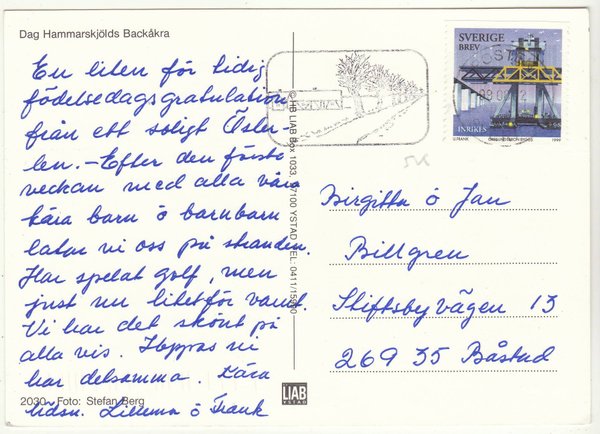 Dag Hammarskjölds Backåkra
En liten för tidig
födelsedagsgratulation
från ett soligt Öster-
len. - Efter den första
veckan med alla våra
kära barn o barnbarn
latar vi oss på stranden.
Har spelat golf, men
just nu litet för varmt.
Vi har det skönt på
alla vis. Hoppas ni
har detsamma. Kära
hälsn. Lillema o Frank
2030 Foto: Stefan Berg
© HB LIAB Box 1033, 27100 YSTAD TEL: 0411/15
LIAB
YSTAD
SVERIGE
BREV
INRIKES
1999
SK
Birgitta o Jan
Billgren
Stiftsbyvägen 13
269 35 Båstad